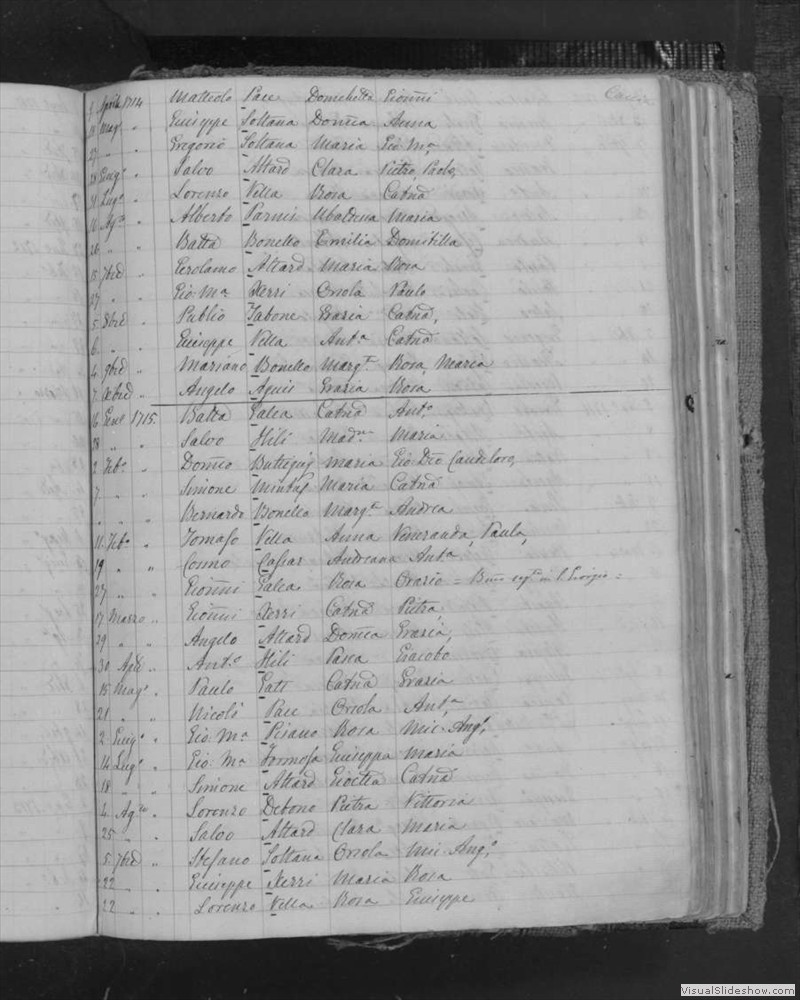 9 April 1714 Matteolo Pace Domchetta Gionñi
19 Mag° " Giuseppe Soltana Domca Anna
27 " " Gregorio Soltana Maria Gio Ma
28 Giug° " Salvo Attard Clara Pietro, Paolo,
31 Lug° " Lorenzo Vella Rosa Catna
11 Ag° " Alberto Parnis Ubaldesca Maria
26 " " Batta Bonello Emilia Domitilla
15 7bre " Gerolamo Attard Maria Rosa
27 " " Gio Ma Xerri Orsola Paulo
5 8bre " Publio Tabone Grazia Catna,
6 " " Giuseppe Vella Anta Catna
4 9bre " Mariano Bonello Margta Rosa, Maria
7 Xbre " Angelo Agius Grazia Rosa
16 Gen° 1715. Batta Galea Catna Ant°
28 " " Salvo Hili Madna Maria
2 Feb° " Domco Buttigieg Maria Gio: Dco Candeloro,
7 " " Simone Mintuf Maria Catna
" " " Bernardo Bonello Margta Andrea
11 Feb° " Tomaso Vella Anna Veneranda, Paula,
19 " " Cosmo Cassar Andreana Anta
27 " " Gionñi Galea Rosa Orazio =
17 Marzo " Gionñi Xerri Catna Pietra
29 " " Angelo Attard Domca Grazia,
30 Aple " Ant° Hili Pasca Giacobo
15 Mag° " Paulo Gatt Catna Grazia
21 " " Nicoli Pace Orsola Anta
2 Giug° " Gio: Ma Pisano Rosa Mic: Ang°,
14 Lug° " Gio: Ma Formosa Giuseppa Maria
18 " " Simone Attard Gioetta Catna
4 Ag° " Lorenzo Debono Pietra Vittoria
25 " " Salvo Attard Clara Maria
5 7bre " Stefano Soltana Orsola Mic: Ang°
22 " " Giuseppe Xerri Maria Rosa
22 " " Lorenzo Vella Rosa Giuseppe
VisualSlideshow.com